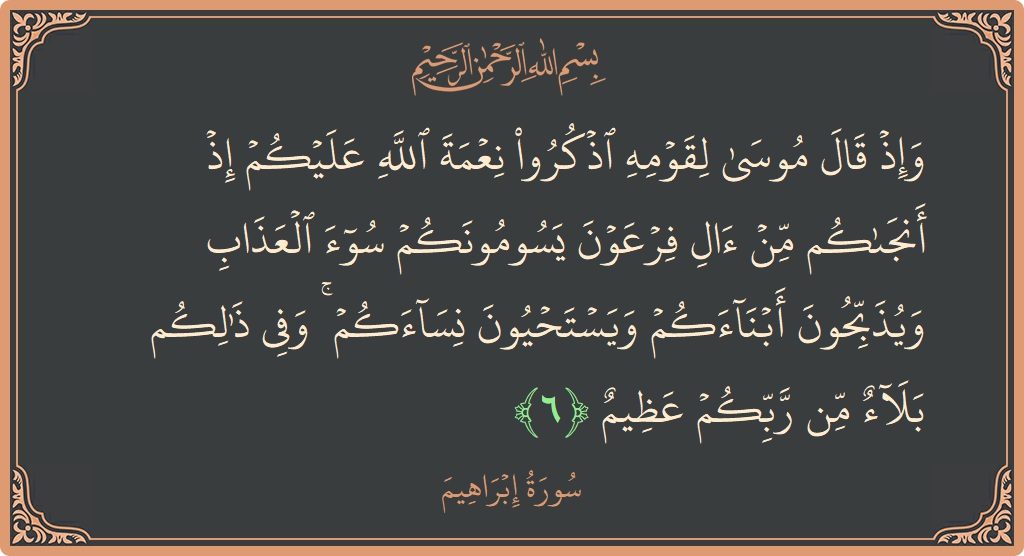 بِسْمِ اللهِ الرَّحْمٰنِ الرَّحِيْمِ
وَإِذۡ قَالَ مُوسَىٰ لِقَوۡمِهِ ٱذۡكُرُواْ نِعۡمَةَ ٱللَّهِ عَلَيۡكُمۡ إِذۡ
أَنجَىٰكُم مِّنۡ ءَالِ فِرۡعَوۡنَ يَسُومُونَكُمۡ سُوٓءَ ٱلۡعَذَابِ
وَيُذَبِّحُونَ أَبۡنَآءَكُمۡ وَيَسۡتَحۡيُونَ نِسَآءَكُمۡۚ وَفِي ذَٰلِكُم
بَلَآءٌ مِّن رَّبِّكُمۡ عَظِيمٌ ﴿٦﴾
سُورَةُ إِبۡرَاهِيمَ